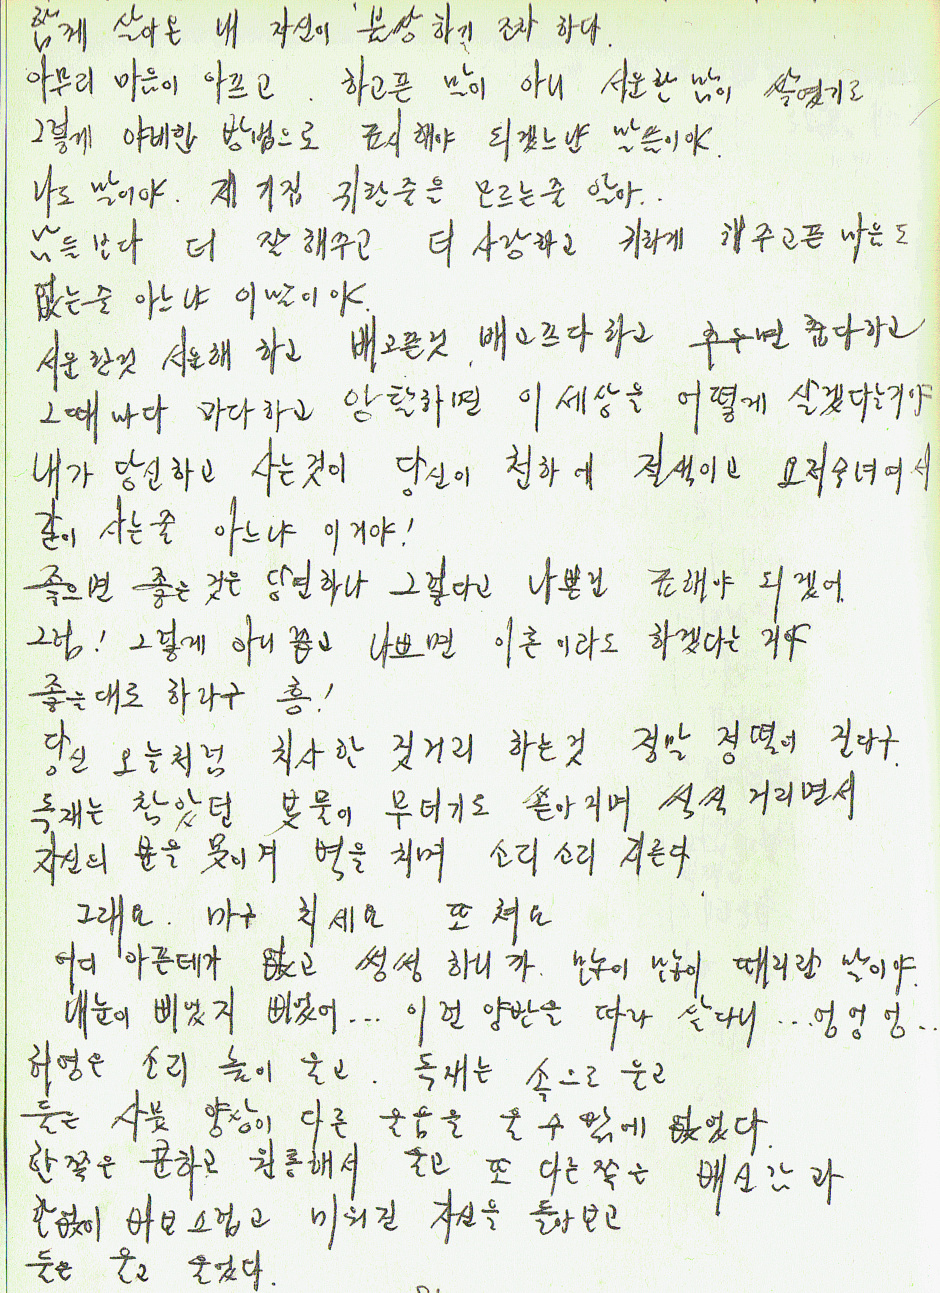 함께 살아온 내 자신이 불쌍하기 조차 하다.
아무리 마음이 아프고. 하고픈 말이 아니 서운한 맘이 쌓였기로
그렇게 야비한 방법으로 표시해야 되겠느냔 말씀이야.
나도 말이야. 제 기집 귀한줄을 모르는줄 알아..
남들보다 더 잘해주고 더 사랑하고 귀하게 해주고픈 마음도
없는줄 아느냐 이말이야.
서운한것 서운해 하고 배고픈것 배고프다하고 추우면 춥다하고
그때마다 과다하고 앙탈하면 이 세상을 어떻게 살겠다는거야
내가 당신하고 사는것이 당신이 천하에 절색이고 요저숙녀여서
같이 사는줄 아느냐 이거야!
좋으면 좋은 것은 당연하나 그렇다고 나쁜건 표해야 되겠어.
그럼! 그렇게 아니꼽고 나쁘면 이혼이라도 하겠다는 거야
좋을대로 하라구 흥!
당신 오늘처럼 치사한 짓거리 하는것 정말 정떨어 진다구.
독재는 참았던 봇물이 무더기로 쏟아지며 씩씩 거리면서
자신의 분을 못이겨 벽을 치며 소리소리 지른다
그래요. 마구 치세요 또 쳐요
어디 아픈데가 없고 씽씽 하니까. 많이 많이 때리란 말이야.
내눈이 삐었지 삐었어... 이런 양반을 따라 살다니 ...엉엉엉..
허영은 소리 높이 울고. 독재는 속으로 울고
둘은 사뭇 양상이 다른 울음을 울 수 밖에 없었다.
한쪽은 분하고 원통해서 울고 또 다른쪽은 배신감과
한없이 바보스럽고 미워진 자신을 돌아보고
둘은 울고 울었다.